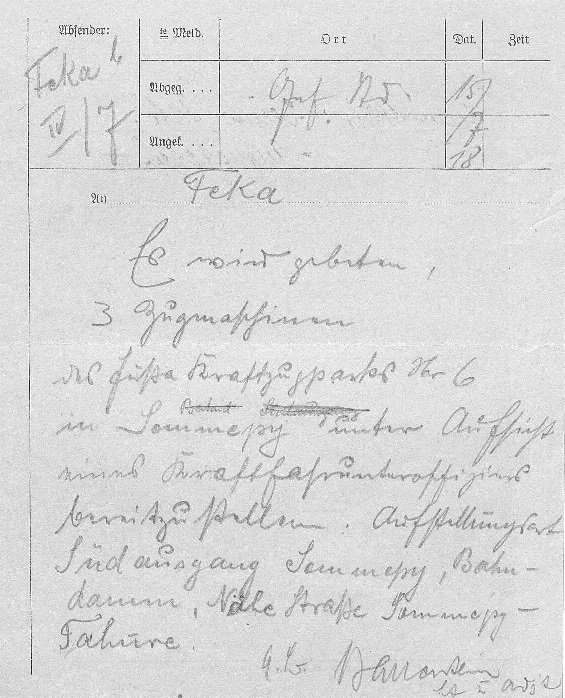 Absender: te Meld. Ort Dat. Zeit
Feka
IV/7
Abgeg. . . . 15/
7
Angek. . . . 18
An Feka
Es wird gebeten,
3 Zugmaschinen
des Fußa Kraftzugparks Nr 6
in Sommepy unter Aufsicht
eines Kraftfahrunteroffiziers
bereitzustellen. Aufstellungsort
Südausgang Sommepy, Bahn-
damm, Nähe Straße Sommepy-
Tahure.